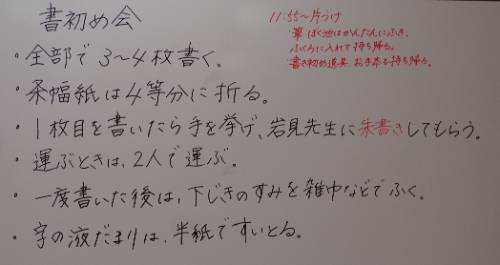 書初め会
・全部で3〜4枚書く。
・条幅紙は4等分に折る。
・1枚目を書いたら手を挙げ、岩見先生に朱書きしてもらう。
・運ぶときは、2人で運ぶ。
・一度書いた後は、下じきのすみを雑巾などでふく。
・字の液だまりは、半紙ですいとる。
11:55〜片づけ
筆 ぼく池はかんたんにふき、
ふくろに入れて持ち帰る。
書き初め道具、お手本も持ち帰る。